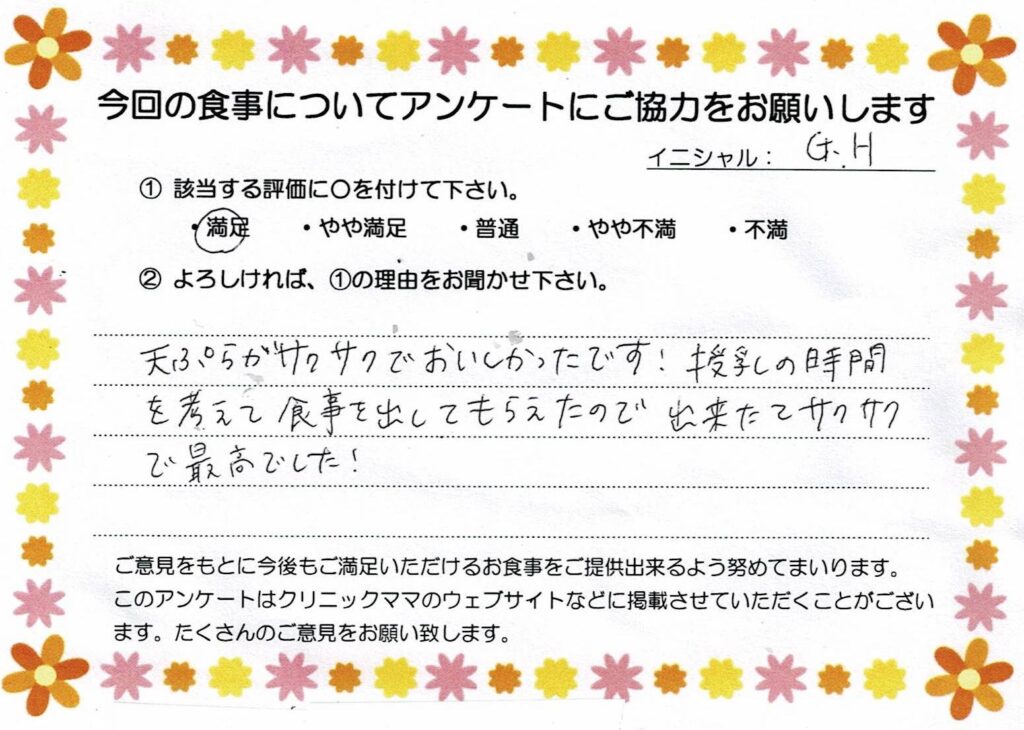 今回の食事についてアンケートにご協力をお願いします
イニシャル： G.H
① 該当する評価に〇を付けて下さい。
・満足 ・やや満足 ・普通 ・やや不満 ・不満
② よろしければ、①の理由をお聞かせ下さい。
天ぷらがサクサクでおいしかったです！授乳の時間
を考えて食事を出してもらえたので出来たてサクサク
で最高でした！
ご意見をもとに今後もご満足いただけるお食事をご提供出来るよう努めてまいります。
このアンケートはクリニックママのウェブサイトなどに掲載させていただくことがござい
ます。たくさんのご意見をお願い致します。